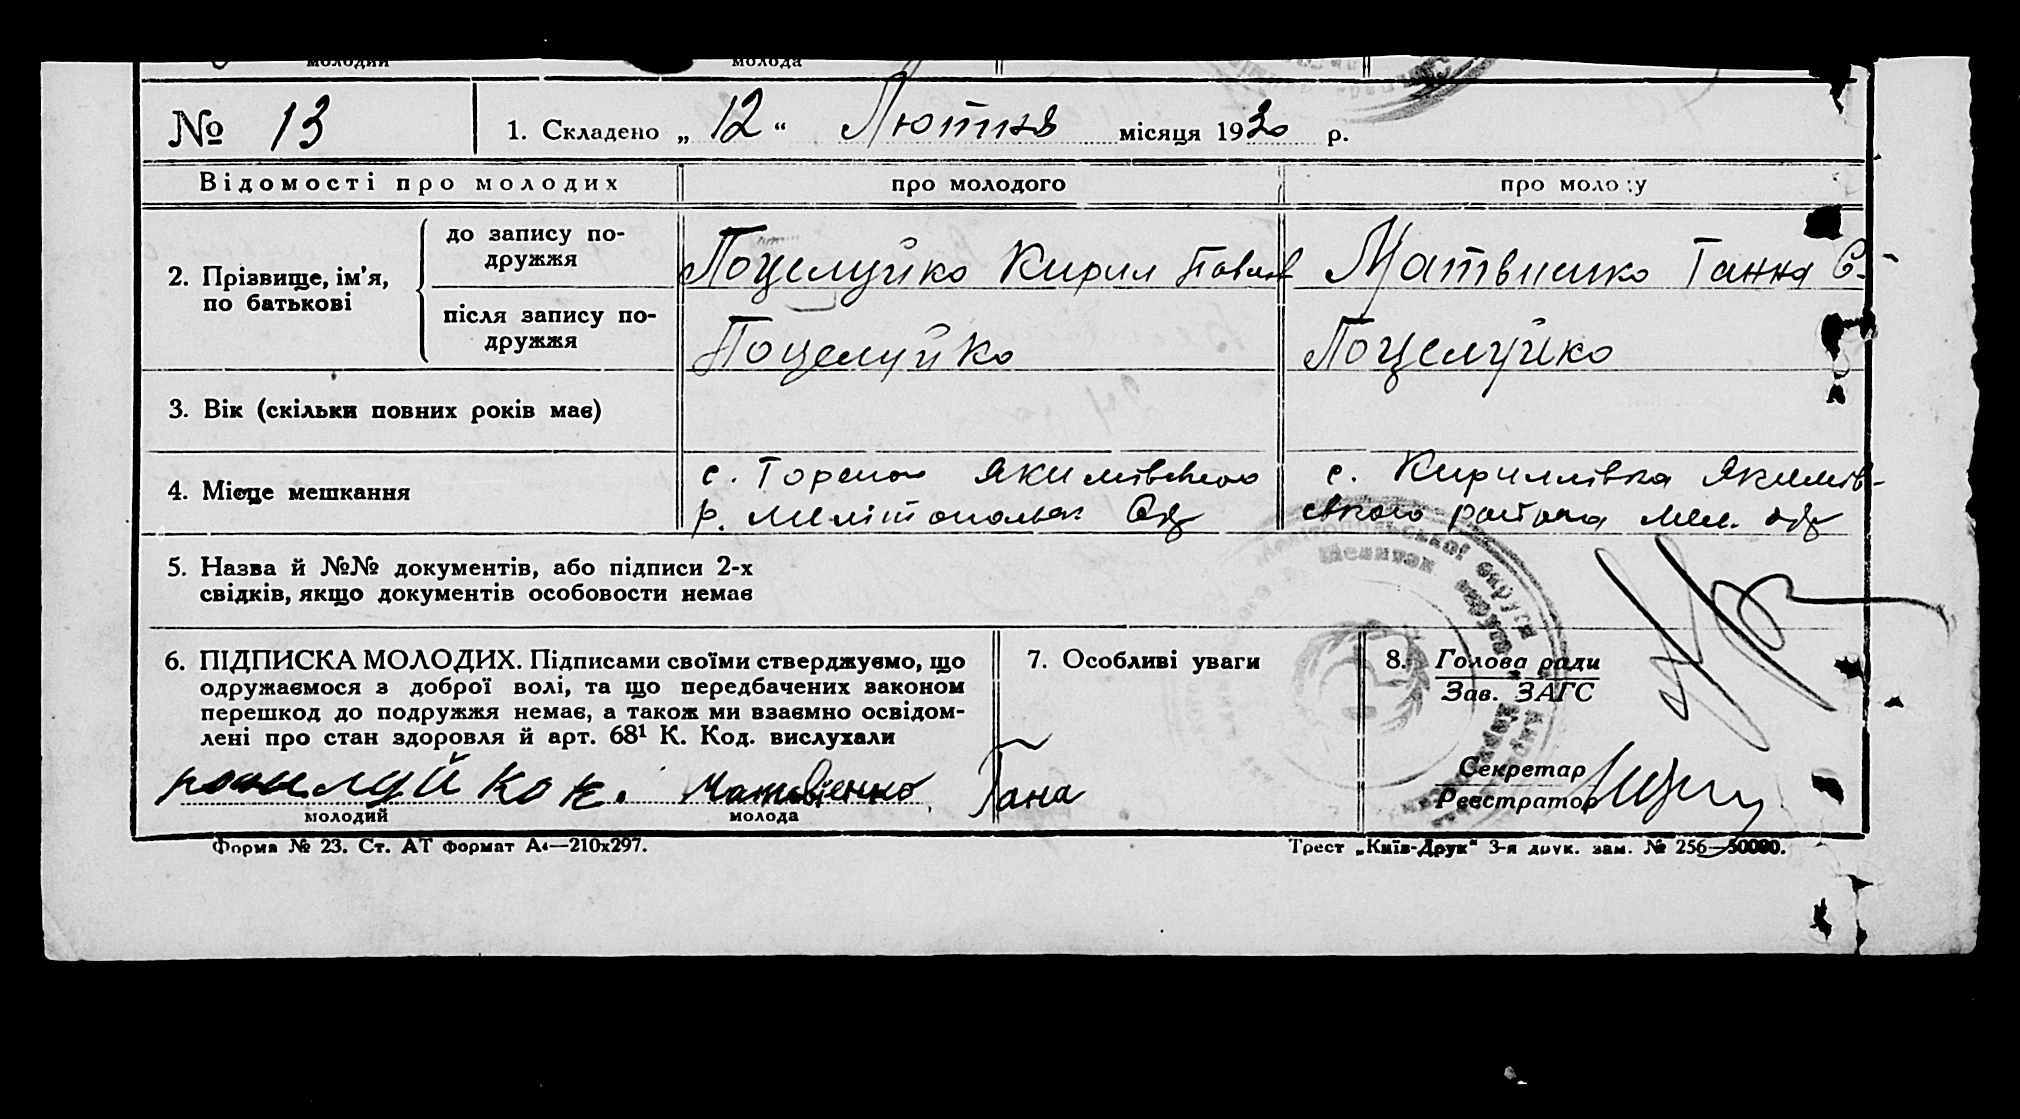 молодий молода
№ 13 1. Складено „ 12 “ Лютня місяця 1930 р.
Відомості про молодих про молодого про молоду
2. Прізвище, ім'я, по батькові
до запису по-
дружжя
Поцелуйко Кирил Павлов Матвиенко Ганна С.
після запису по-
дружжя
Поцелуйко Поцелуйко
3. Вік (скільки повних років має)
4. Місце мешкання
с. Горелое Якимівського с. Кириллівка Якимів-
р. Мелітопольск Окр ського района Мел. окр
5. Назва й №№ документів, або підписи 2-х
свідків, якщо документів особовости немає
6. ПІДПИСКА МОЛОДИХ. Підписами своїми стверджуємо, що
одружаємося з доброї волі, та що передбачених законом
перешкод до подружжя немає, а також ми взаємно освідом-
лені про стан здоровля й арт. 68¹ К. Код. вислухали
7. Особливі уваги
8. Голова ради
Зав. ЗАГС
Секретар
Реєстратор
Поцилуйко К. Матвієнко Гана
молодий молода
Форма № 23. Ст. АТ формат А4—210х297. Трест „Київ-Друк“ 3-я друк. зам. № 256—50000.